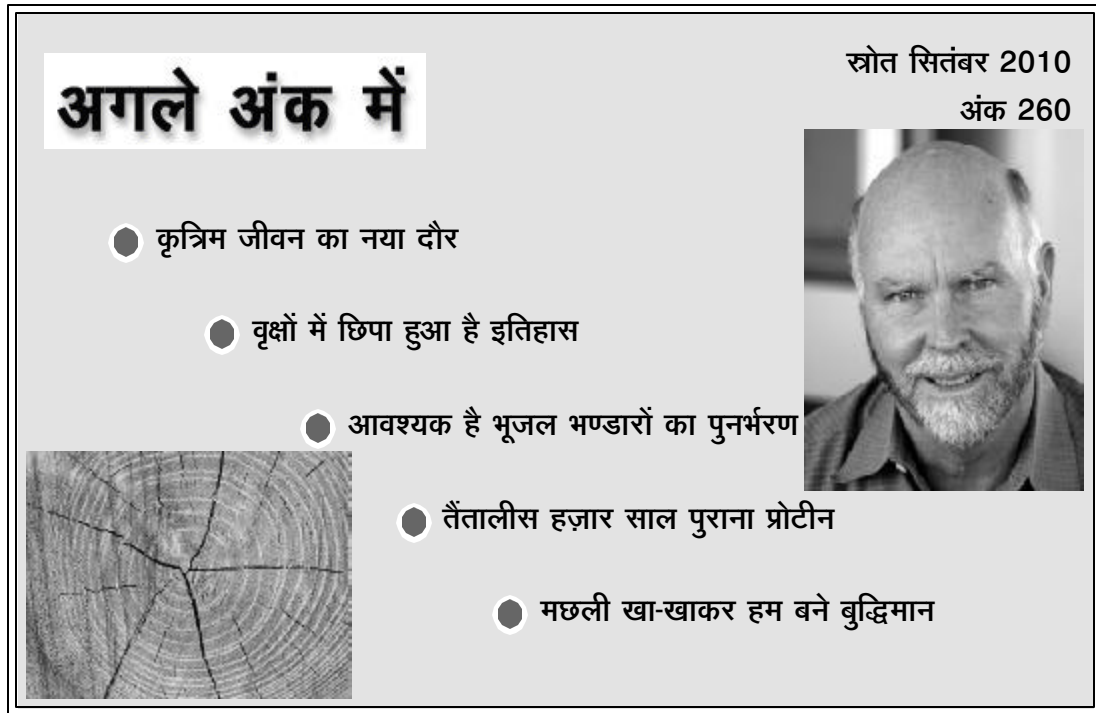 अगले अंक में
स्रोत सितंबर 2010
अंक 260
कृत्रिम जीवन का नया दौर
वृक्षों में छिपा हुआ है इतिहास
आवश्यक है भूजल भण्डारों का पुनर्भरण
तैंतालीस हज़ार साल पुराना प्रोटीन
मछली खा-खाकर हम बने बुद्धिमान